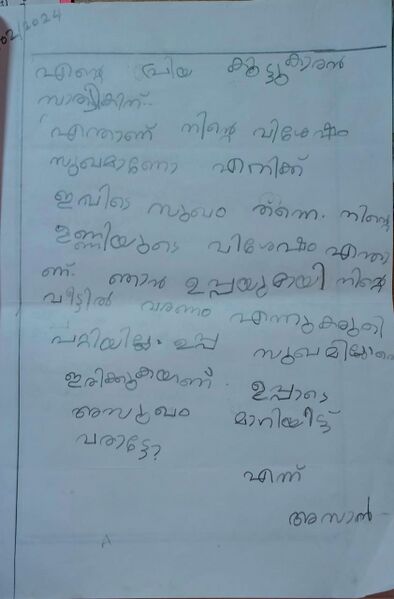 02/2024
എന്റെ പ്രിയ കൂട്ടുകാരൻ
സാത്വികിന്.
എന്താണ് നിന്റെ വിശേഷം
സുഖമാണോ എനിക്ക്
ഇവിടെ സുഖം തന്നെ. നിന്റെ
ഉണ്ണിയുടെ വിശേഷം എന്താ
ണ്. ഞാൻ ഉപ്പയുമായി നിന്റെ
വീട്ടിൽ വരണം എന്നു കരുതി
പറ്റിയില്ല. ഉപ്പ സുഖമില്ലാതെ
ഇരിക്കുകയാണ്. ഉപ്പാടെ
അസുഖം മാറിയിട്ട്
വരാട്ടോ?
എന്ന്
അസാൻ